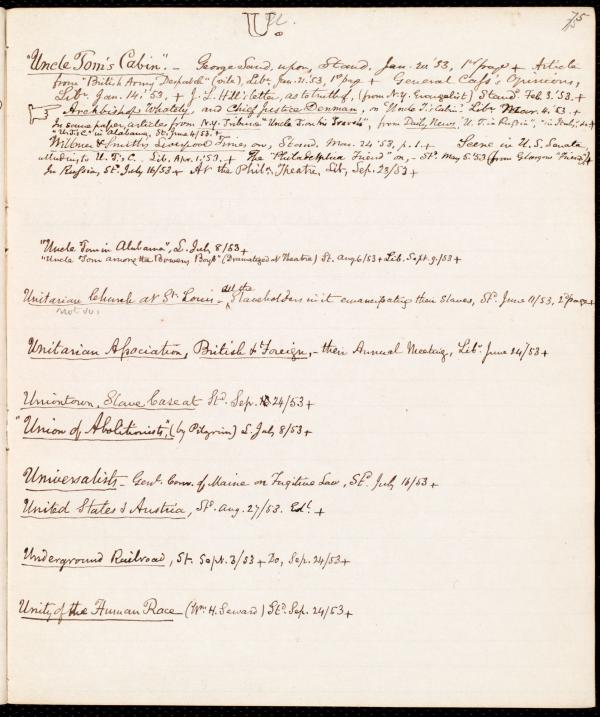 U.
75
"Uncle Tom's Cabin". - George Sand, upon, Stand. Jan. 20 '53, 1st page + Article
from "British Army Despatch" (vite), Lib. Jan. 21. '53, 1st pag + General Cass's Opinions,
Lib. Jan. 14, '53, + J. L. Hill's letter, as to truth of, (from N.Y. Evangelist) Stand Feb. 3. '53. +
Archbishop Whately, and Chief Justice Denman, on "Uncle T's Cabin" Lib. Mar. 4. '53. +
in same paper, articles from N.Y. Tribune "Uncle Tom his Travels", from Daily News, "U. T. in Russia",
"U. T's C." in Alabama, St. June 4/53. +
Wilmer & Smith's Liverpool Times on, Stand. Mar. 24 '53, p. 1. + Scene in U.S. Senate
attending to U. T's C., Lib. Apr. 1. '53. + The "Philadelphia Friend" on, - St. May 5. '53 (from Glasgow "Friend") +
In Russia, St. July 16/53 + At the Phila. Theatre, Lib. Sep. 23/53 +
"Uncle Tom in Alabama", L. July 8/53 +
"Uncle Tom among the Bowery Boys" (Dramatized at Theatre) St. Aug 6/53 + Lib. Sept. 9./53 +
Unitarian Church at St. Louis - all the Slaveholders in it emancipating their Slaves, Sd. June 11/53, 2d page +
not so.
Unitarian Association, British & Foreign, - their Annual Meeting, Lib. June 24/53 +
Uniontown, Slave Case at Sd. Sep. 24/53 +
"Union of Abolitionists", (by Pilgrim) L. July 8/53 +
Universalists - Genl. Conv. of Maine on Fugitive Law, Sd. July 16/53 +
United States & Austria, Sd. Aug. 27/53. Edl. +
Underground Railroad, St. Sept. 3/53 + Do, Sep. 24/53 +
Unity of the Human Race (Wm H. Seward) Sd. Sep. 24/53 +